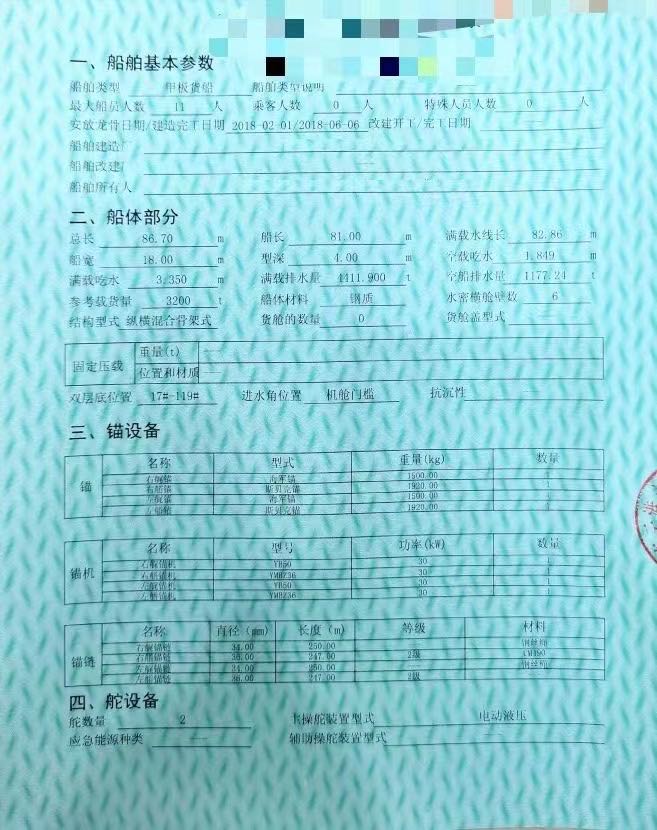 一、船舶基本参数
船舶类型 甲板货船 船舶类型说明
最大船员人数 11 人 乘客人数 0 人 特殊人员人数 0 人
安放龙骨日期/建造完工日期 2018-02-01/2018-06-06 改建开工/完工日期
船舶建造厂
船舶改建厂
船舶所有人
二、船体部分
总长 86.70 m 船长 81.00 m 满载水线长 82.86 m
船宽 18.00 m 型深 4.00 m 空载吃水 1.849 m
满载吃水 3.350 m 满载排水量 4411.900 t 空船排水量 1177.24 t
参考载货量 3200 t 船体材料 钢质 水密横舱壁数 6
结构型式 纵横混合骨架式 货舱的数量 0 货舱盖型式
固定压载 重量(t)
位置和材质
双层底位置 17#-119# 进水角位置 机舱门槛 抗沉性
三、锚设备
锚 名称 型式 重量(kg) 数量
右艉锚 海军锚 1500.00 1
右艏锚 斯贝克锚 1920.00 1
左艉锚 海军锚 1500.00 1
左艏锚 斯贝克锚 1920.00 1
锚机 名称 型号 功率(kW) 数量
右艉锚机 YH50 30 1
右艏锚机 YMBZ36 30 1
左艉锚机 YH50 30 1
左艏锚机 YMBZ36 30 1
锚链 名称 直径(mm) 长度(m) 等级 材料
右艉锚链 34.00 250.00 钢丝绳
右艏锚链 36.00 247.00 2级 CM490
左艉锚链 24.00 250.00 钢丝绳
左艏锚链 36.00 247.00 2级
四、舵设备
舵数量 2 主操舵装置型式 电动液压
应急能源种类 辅助操舵装置型式